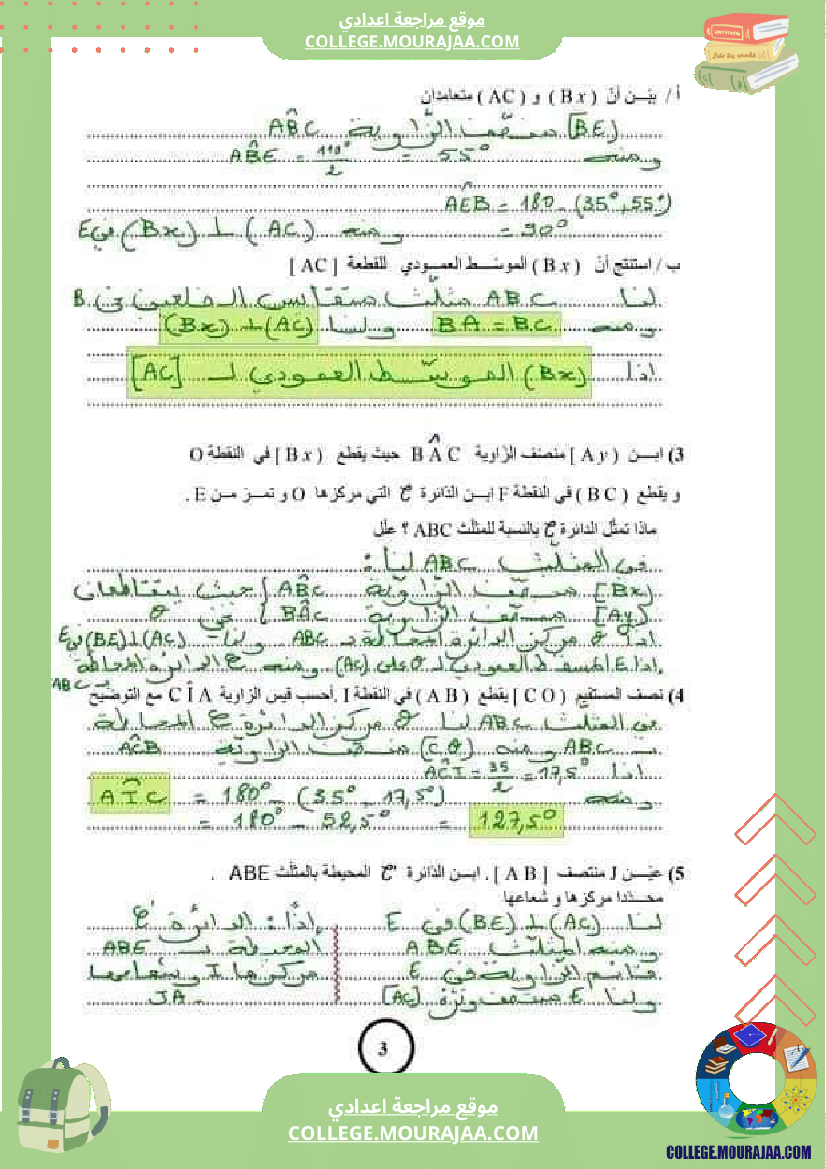 موقع مراجعة اعدادي
COLLEGE.MOURAJAA.COM
أ/ بيّن أنّ (Bx) و (AC) متعامدان
[BE) منصّف الزّاوية ABC
ومنه ABE = 110°/2 = 55°
AEB = 180 - (35°+55°)
= 90° ومنه (AC) ⊥ (Bx) في E
ب / استنتج أنّ (Bx) الموسّط العمودي للقطعة [AC]
لنا ABC مثلّث متقايس الضلعين في B
ومنه BA = BC ولنا (AC) ⊥ (Bx)
اذا (Bx) الموسّط العمودي لـ [AC]
3) ابن [Ay) منصف الزاوية BAC حيث يقطع [Bx) في النقطة O
و يقطع (BC) في النقطة F ابن الدّائرة C التي مركزها O و تمرّ من E.
ماذا تمثّل الدائرة C بالنسبة للمثلّث ABC ؟ علّل
في المثلّث ABC لنا :
[Bx) منصّف الزّاوية ABC حيث يتقاطعان
[Ay) منصّف الزّاوية BAC في O
اذا O مركز الدائرة المحاطة بـ ABC ولنا (AC) ⊥ (BE) في E
اذا E المسقط العمودي لـ O على (AC) ومنه C الدائرة المحاطة
بـ ABC
4) نصف المستقيم [CO) يقطع (AB) في النقطة I. أحسب قيس الزاوية CIA مع التوضيح
في المثلّث ABC لنا O مركز الدائرة C المحاطة
بـ ABC ومنه [CO) منصّف الزاوية ACB
اذا ACI = 35/2 = 17,5°
ومنه AIC = 180° - (35° + 17,5°)
= 180° - 52,5° = 127,5°
5) عيّن J منتصف [AB]. ابن الدّائرة C' المحيطة بالمثلّث ABE .
محدّدا مركزها و شعاعها
لنا (AC) ⊥ (BE) في E
ومنه المثلّث ABE
قائم الزّاوية في E
ولنا E منتصف وتره [AC]
إذا : الدائرة C'
المحيطة بـ ABE
مركزها I وشعاعها
JA
3
موقع مراجعة اعدادي
COLLEGE.MOURAJAA.COM
COLLEGE.MOURAJAA.COM